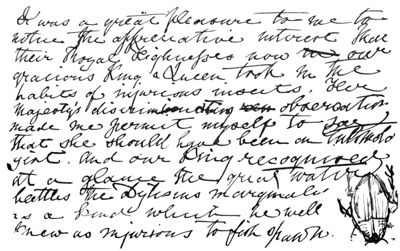 It was a great pleasure to me to
notice the appreciative interest that
their Royal Highnesses now our
gracious King & Queen took in the
habits of injurious insects. Her
Majesty's discriminating observation
made me permit myself to say
that she should have been an Entomolo
gist. And our King recognised
at a glance the great water
beetles the Dytiscus marginalis
as a kind which he well
knew as injurious to fish spawn.